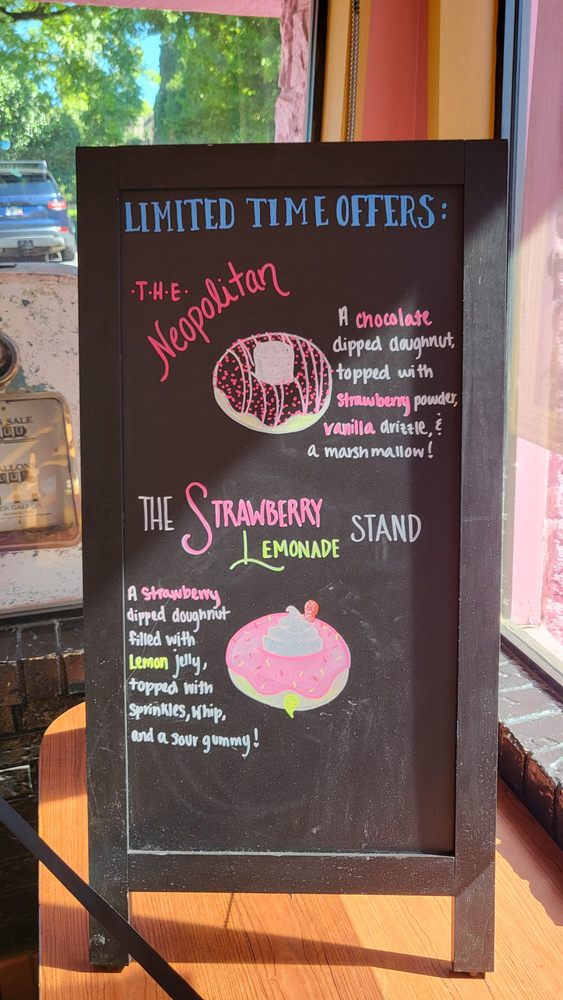 LIMITED TIME OFFERS:
·T·H·E·
Neopolitan
A chocolate
dipped doughnut,
topped with
strawberry powder,
vanilla drizzle, &
a marshmallow!
THE STRAWBERRY
LEMONADE STAND
A strawberry
dipped doughnut
filled with
Lemon jelly,
topped with
sprinkles, whip,
and a sour gummy!
SALE
GALLONS